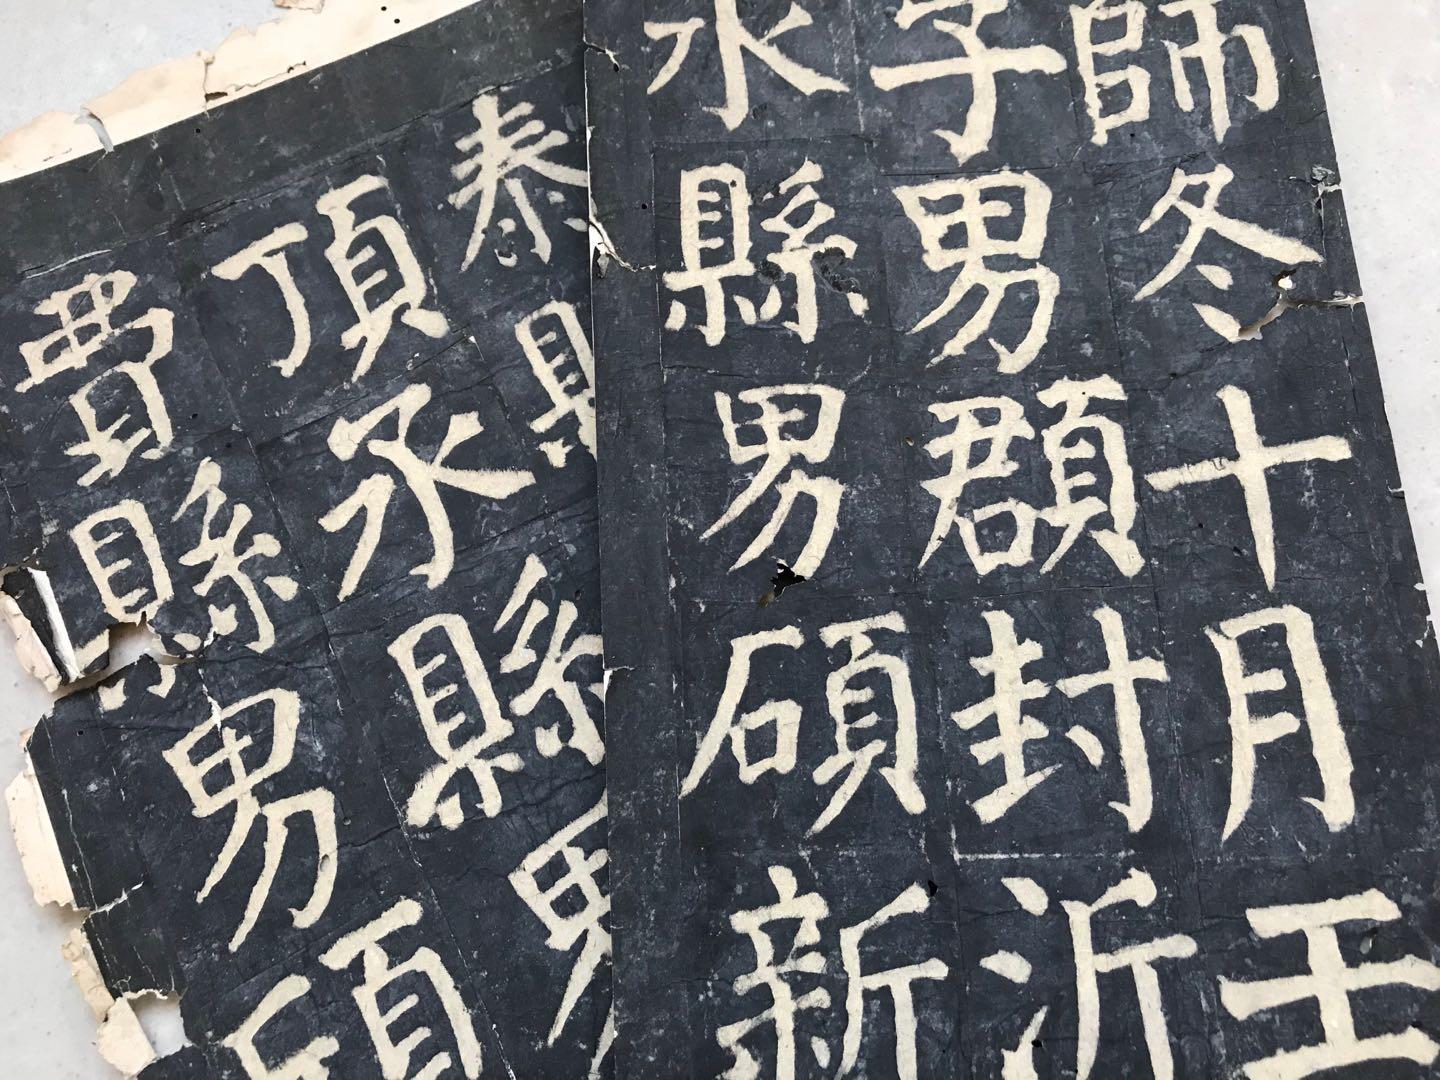 師冬十月王
子男頵封沂
水縣男碩新
泰縣男
頂氶縣
費縣男